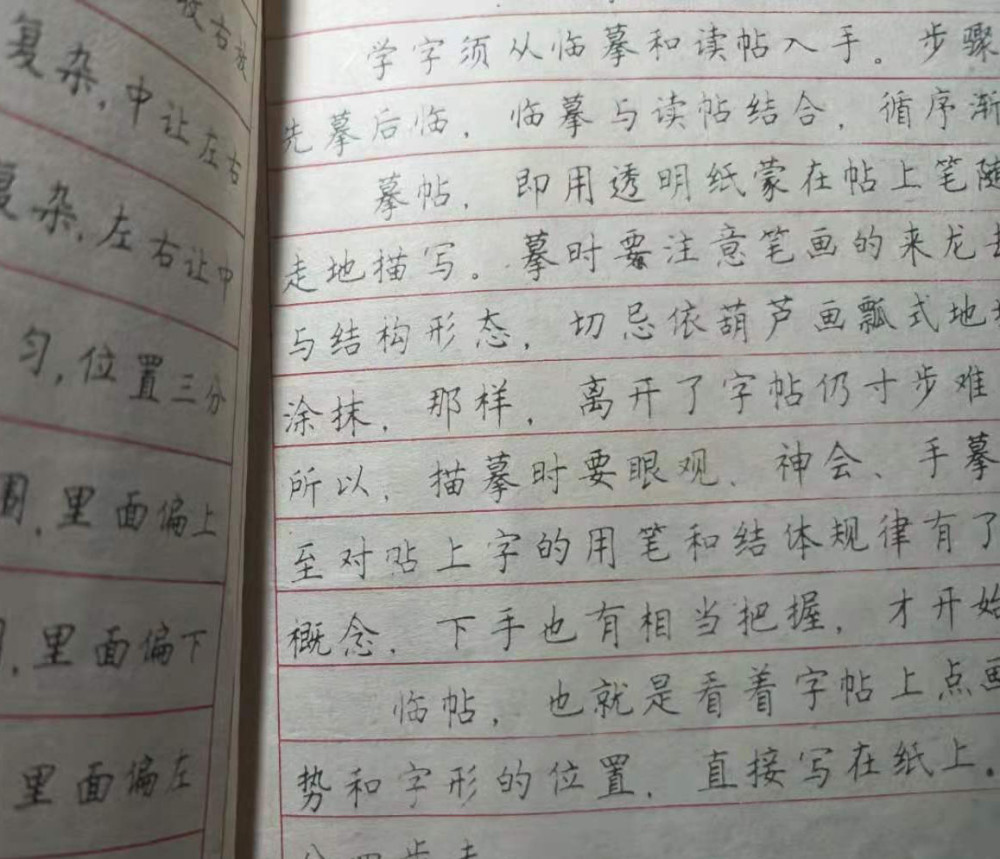 右放
复杂,中让左右
复杂,左右让中
匀,位置三分
围,里面偏上
里面偏下
里面偏左
学字须从临摹和读帖入手。步骤
先摹后临,临摹与读帖结合,循序渐
摹帖,即用透明纸蒙在帖上笔随
走地描写。摹时要注意笔画的来龙去
与结构形态,切忌依葫芦画瓢式地
涂抹,那样,离开了字帖仍寸步难
所以,描摹时要眼观、神会、手摹
至对帖上字的用笔和结体规律有了
概念,下手也有相当把握,才开始
临帖,也就是看着字帖上点画
势和字形的位置,直接写在纸上。